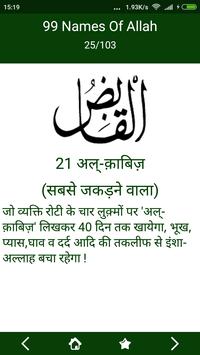 15:19
1.93K/s
99 Names Of Allah
25/103
القابض
21 अल्-क़ाबिज़
(सबसे जकड़ने वाला)
जो व्यक्ति रोटी के चार लुक़्मों पर 'अल्-
क़ाबिज़' लिखकर 40 दिन तक खायेगा, भूख,
प्यास,घाव व दर्द आदि की तकलीफ से इंशा-
अल्लाह बचा रहेगा !